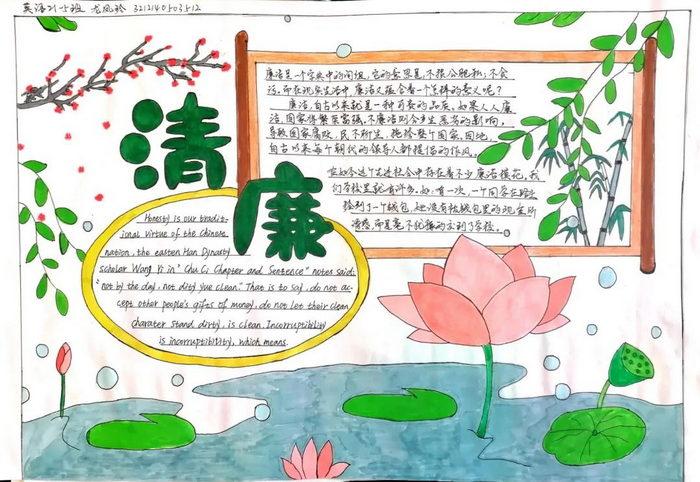 英语21-5班 龙凤玲 3212140503512
清
廉
廉洁是一个字典中的词组,它的意思是:不损公肥私;不贪
污。而在现实生活中,廉洁又蕴含着一个怎样的意义呢?
廉洁,自古以来就是一种可贵的品质,如果人人廉
洁,国家将繁荣富强,不廉洁则会产生恶劣的影响,
导致国家腐败,民不聊生,拖垮整个国家,因此,
自古以来每个朝代的领导人都提倡的作风。
在如今这个先进社会中存在着不少廉洁模范,我
们学校里就有许多。如:有一次,一个同学在路上
捡到了一个钱包,她没有被钱包里的现金所
诱惑,而是毫不犹豫的交到了学校。
Honesty is our tradit-
ional virtue of the chinese
nation, the easten Han Dynasty
scholar Wang Yi in "Chu Ci Chapter and Sentence" notes said:
"not by the day, not dirty yue clean." That is to say, do not ac-
cept other people's gifts of money, do not let their clean
charater stand dirty, is clean. Incorruptibility
is incorruptibility, which means.